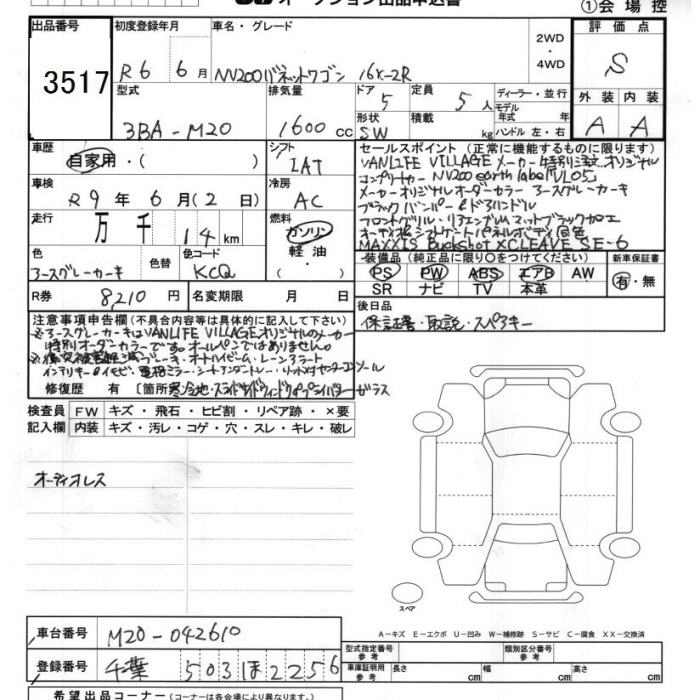 オークション出品申込書
①会場控
出品番号
3517
初度登録年月
R6 6月
車名・グレード
NV200バネットワゴン 16X-2R
2WD
・
4WD
評価点
S
外装 内装
A A
型式
3BA-M20
排気量
1600 cc
ドア
5
定員
5人
ディーラー・並行
モデル
年式 年
ハンドル 左・右
形状
SW
積載
kg
車歴
自家用・( )
シフト
IAT
セールスポイント (正常に機能するものに限ります)
VANLIFE VILLAGE メーカー特別注文オリジナル
コンプリートカー NV200 earth label「VL05」
メーカーオリジナルオーダーカラー アースグレーカーキ
ブラックバンパー&ドアハンドル
フロントグリル・リアエンブレムマットブラック加工
MAXXIS Buckshot XCLEAVE SE-6
車検
R9年6月(2日)
冷房
AC
走行
万 千 14 km
燃料
ガソリン
軽油
( )
色
アースグレーカーキ
色替
色コード
KCQ
装備品 (純正品に限り○をつけてください)
PS PW ABS エアB AW
SR ナビ TV 本革
新車保証書
有・無
R券 8,210 円
名変期限 月 日
後日品
保証書・取説・スペアキー
注意事項申告欄 (不具合内容等は具体的に記入して下さい)
※アースグレーカーキはVANLIFE VILLAGEオリジナルのメーカー
特別オーダーカラーです。オールペンではありません。
インテリキー&イモビ・電格ミラー・シートアンダートレー・リッド付センターコンソール
修復歴 有 [箇所 寒冷地・スライドサイドウィンドウ&プライバシーガラス
検査員
記入欄
FW キズ・飛石・ヒビ割・リペア跡・×要
内装 キズ・汚レ・コゲ・穴・スレ・キレ・破レ
オーディオレス
スペア
A-キズ E-エクボ U-凹み W-補修跡 S-サビ C-腐食 XX-交換済
車台番号
M20-042610
登録番号
千葉 503 ほ 2256
型式指定番号
参考
類別区分番号
参考
車庫証明用
参考
長さ cm
幅 cm
高さ cm
希望出品コーナー (コーナーは各会場により異なります)